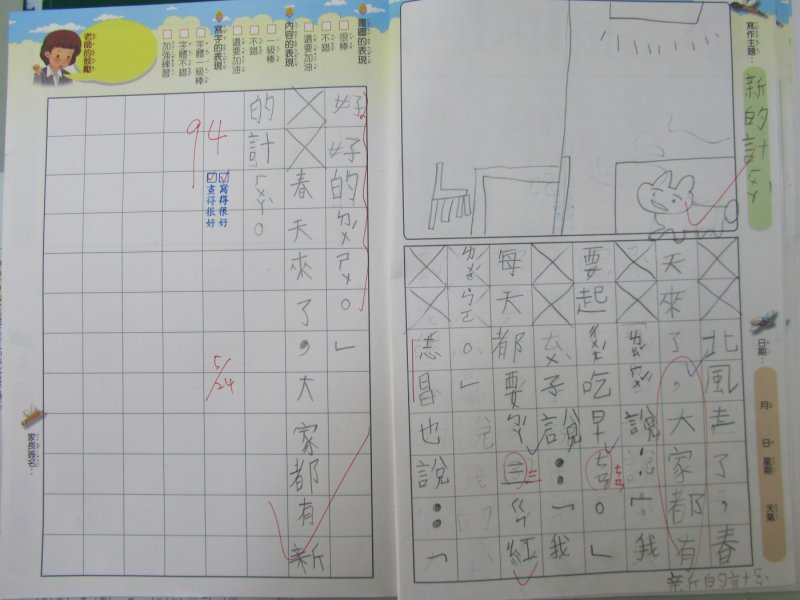 寫作主題：
新的計ㄏㄨㄚˋ
日期：
月
日
星期
天氣
北風走了，春
天來了，大家都有
新的計
說：「我
要起吃早ㄢ。」
子說：「我
每天都要紅
。」
也說：「
好好的ㄉㄨˊㄕㄨ。」
春天來了，大家都有新
的計ㄏㄨㄚˋ。
94
寫得很好
畫得很好
5/24
畫圖的表現
很棒
不錯
還要加油
內容的表現
一級棒
不錯
還要加油
寫字的表現
字體一級棒
字體不錯
加強練習
老師的鼓勵
家長簽名：